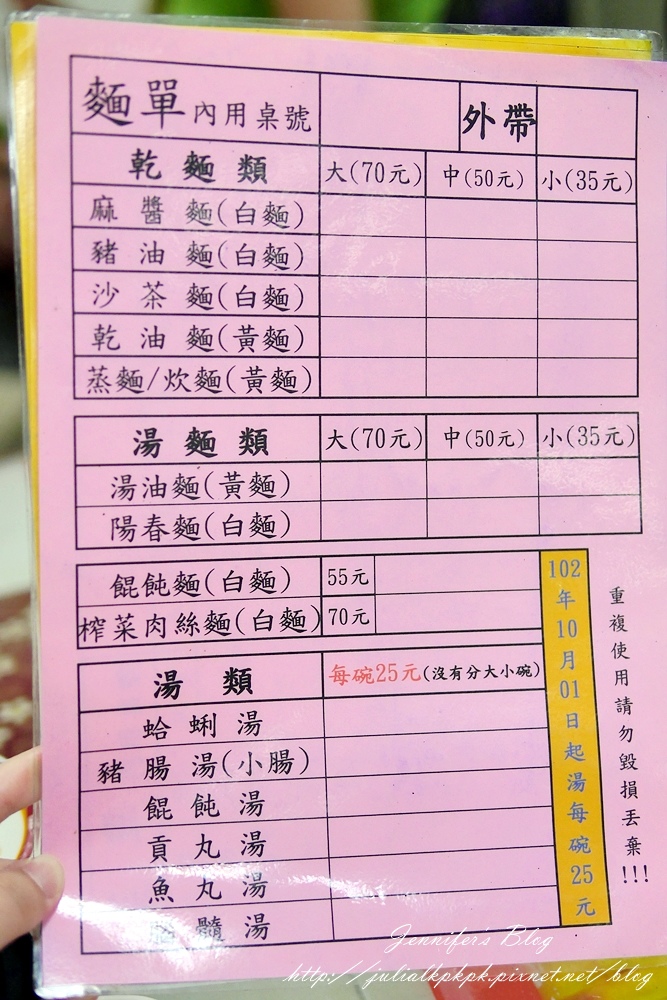 麵單 內用桌號 外帶
乾麵類 大(70元) 中(50元) 小(35元)
麻醬麵(白麵)
豬油麵(白麵)
沙茶麵(白麵)
乾油麵(黃麵)
蒸麵/炊麵(黃麵)
湯麵類 大(70元) 中(50元) 小(35元)
湯油麵(黃麵)
陽春麵(白麵)
餛飩麵(白麵) 55元
榨菜肉絲麵(白麵) 70元
湯類 每碗25元(沒有分大小碗)
蛤蜊湯
豬腸湯(小腸)
餛飩湯
貢丸湯
魚丸湯
髓湯
102年10月01日起湯每碗25元
重複使用請勿毀損丟棄!!!
Jennifer's Blog
http://julialkpkpk.pixnet.net/blog